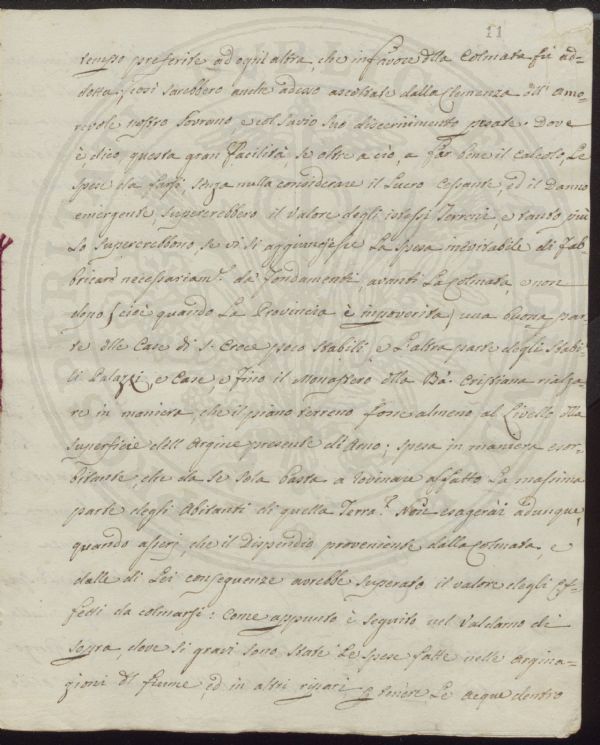 11
tempo preferite ad ogni altra, che in favore dlla Colmata fù ad=
dotta; così sarebbero anche adesso ascoltate dalla Clemenza dll' Amo=
revole nostro Sovrano e col savio suo discernimento pesate. Dove
è dico, questa gran facilità, se oltre a ciò, a far bene il calcolo, Le
spese da farsi, senza nulla considerare il Lucro Cessante, ed il Danno
emergente, supererebbero il valore degli istessi Terreni, e tanto più
Lo supererebbono, se vi si aggiungesse La spesa inevitabile di fab=
bricare necessariam.e da fondamenti avanti La Colmata, e non
dopo (cioè quando La Provincia è impoverita) una buona par
te dlle Case di S. Croce poco stabili, e L'altra parte degli stabi=
li Palazzi, e Case e fino il Monastero dlla Bà. Cristiana rialza
re in maniera, che il piano terreno fosse almeno al Livello dlla
superficie dell' Argine presente d'Arno; spesa in maniera esor=
bitante, che da se sola basta a rovinare affatto La massima
parte degli Abitanti di quella Terra. Non esagerai adunque,
quando asserj, che il Dispendio proveniente dalla Colmata, e
dalle di Lei conseguenze avrebbe superato il valore degli Ef=
fetti da colmarsi: Come appunto è seguito nel Valdarno di
sopra, dove sì gravi sono state Le spese fatte nelle Argina=
zioni dl fiume, ed in altri ripari, a tenere Le acque dentro